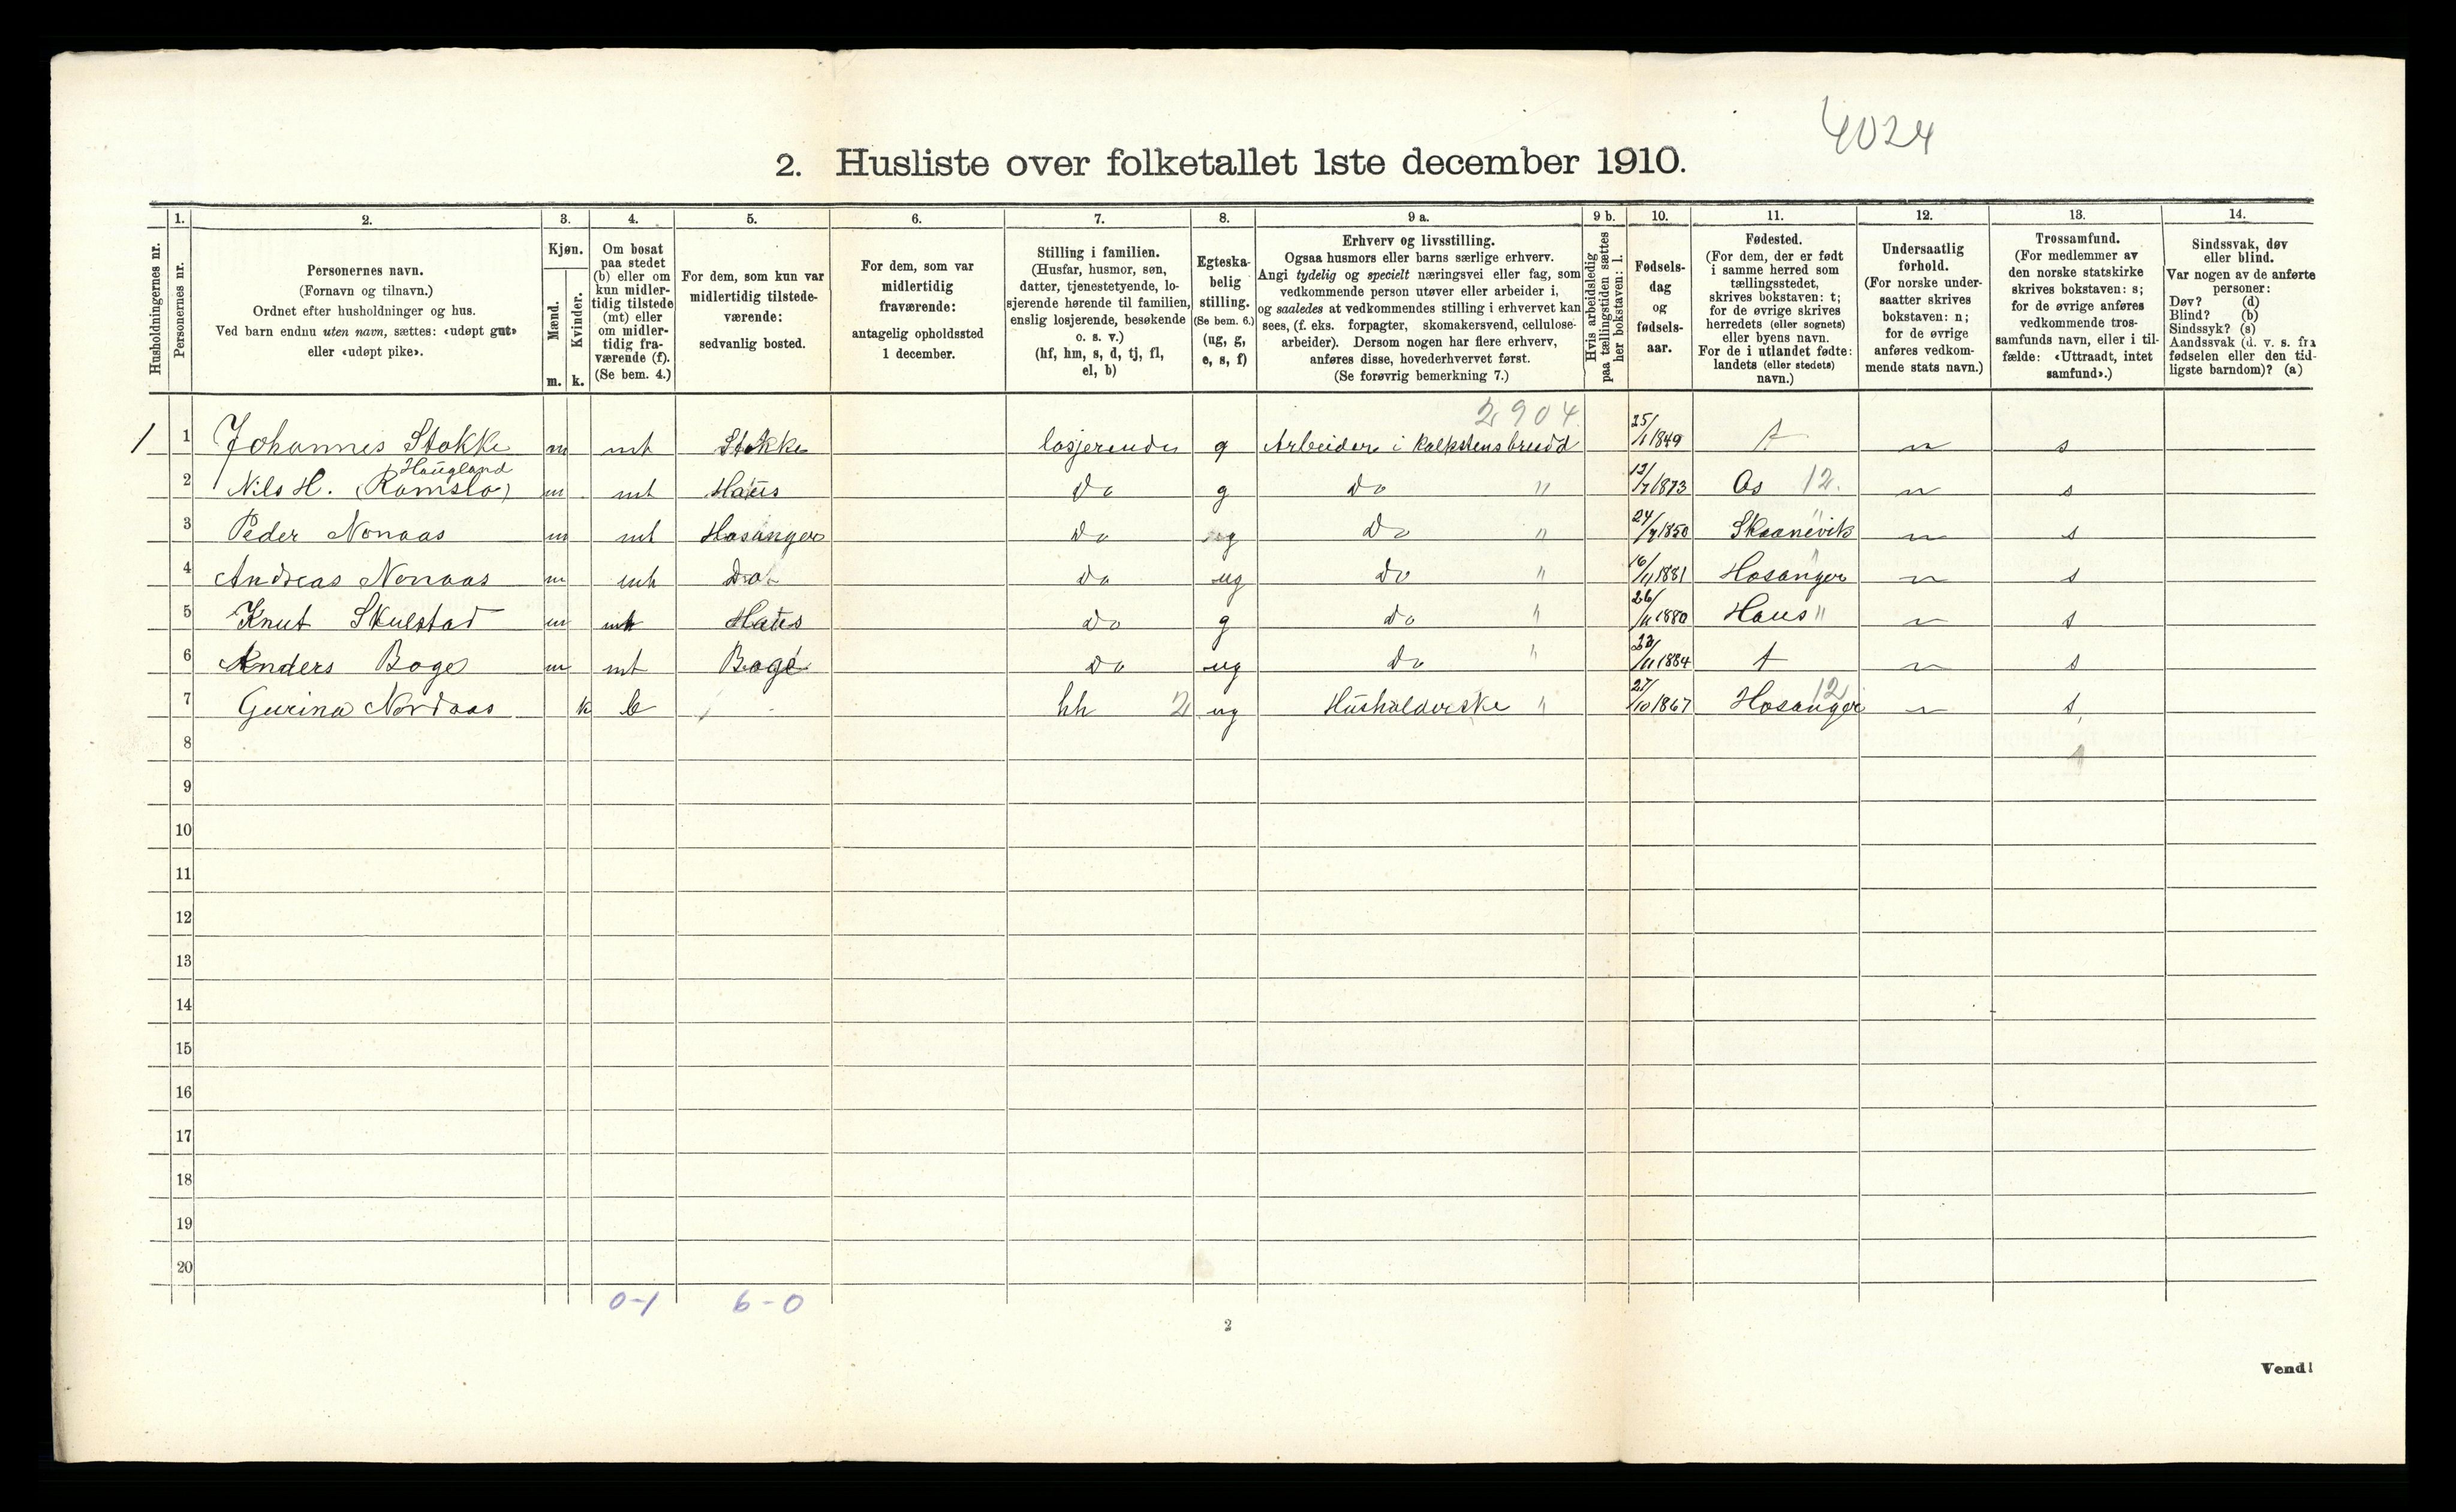 4024
2. Husliste over folketallet 1ste december 1910.
Husholdningernes nr.
1. Personernes nr.
2. Personernes navn.
(Fornavn og tilnavn.)
Ordnet efter husholdninger og hus.
Ved barn endnu uten navn, sættes: «udøpt gut»
eller «udøpt pike».
3. Kjøn.
Mænd. m.
Kvinder. k.
4. Om bosat
paa stedet
(b) eller om
kun midler-
tidig tilstede
(mt) eller
om midler-
tidig fra-
værende (f).
(Se bem. 4.)
5. For dem, som kun var
midlertidig tilstede-
værende:
sedvanlig bosted.
6. For dem, som var
midlertidig
fraværende:
antagelig opholdssted
1 december.
7. Stilling i familien.
(Husfar, husmor, søn,
datter, tjenestetyende, lo-
sjerende hørende til familien,
enslig losjerende, besøkende
o. s. v.)
(hf, hm, s, d, tj, fl,
el, b)
8. Egteska-
belig
stilling.
(Se bem. 6.)
(ug, g,
e, s, f)
9 a. Erhverv og livsstilling.
Ogsaa husmors eller barns særlige erhverv.
Angi tydelig og specielt næringsvei eller fag, som
vedkommende person utøver eller arbeider i,
og saaledes at vedkommendes stilling i erhvervet kan
sees, (f. eks. forpagter, skomakersvend, cellulose-
arbeider). Dersom nogen har flere erhverv,
anføres disse, hovederhvervet først.
(Se forøvrig bemerkning 7.)
9 b. Hvis arbeidsledig
paa tællingstiden sættes
her bokstaven: l.
10. Fødsels-
dag
og
fødsels-
aar.
11. Fødested.
(For dem, der er født
i samme herred som
tællingsstedet,
skrives bokstaven: t;
for de øvrige skrives
herredets (eller sognets)
eller byens navn.
For de i utlandet fødte:
landets (eller stedets)
navn.)
12. Undersaatlig
forhold.
(For norske under-
saatter skrives
bokstaven: n;
for de øvrige
anføres vedkom-
mende stats navn.)
13. Trossamfund.
(For medlemmer av
den norske statskirke
skrives bokstaven: s;
for de øvrige anføres
vedkommende tros-
samfunds navn, eller i til-
fælde: «Uttraadt, intet
samfund».)
14. Sindssvak, døv
eller blind.
Var nogen av de anførte
personer:
Døv? (d)
Blind? (b)
Sindssyk? (s)
Aandssvak (d. v. s. fra
fødselen eller den tid-
ligste barndom)? (a)
2904
1 1 Johannes Stokke m mt Stokke losjerende g Arbeider i kalkstensbrudd 25/1 1849 t n s
Haugland
2 Nils H. (Ramslo) m mt Haus do g do " 1873 Os 12. n s
3 Peder Nonaas m mt Hosanger do ug do " 1850 Skaanevik n s
4 Andreas Nonaas m mt do do ug do " 1881 Hosanger n s
5 Knut Skulstad m mt Haus do g do " 1880 Haus " n s
6 Anders Boge m mt Boge do ug do " 1884 t n s
7 Gurina Nordaas k b hh 2 ug Husholderske " 27/10 1867 Hosanger 12 n s
8
9
10
11
12
13
14
15
16
17
18
19
20
0-1 6-0
2
Vend!